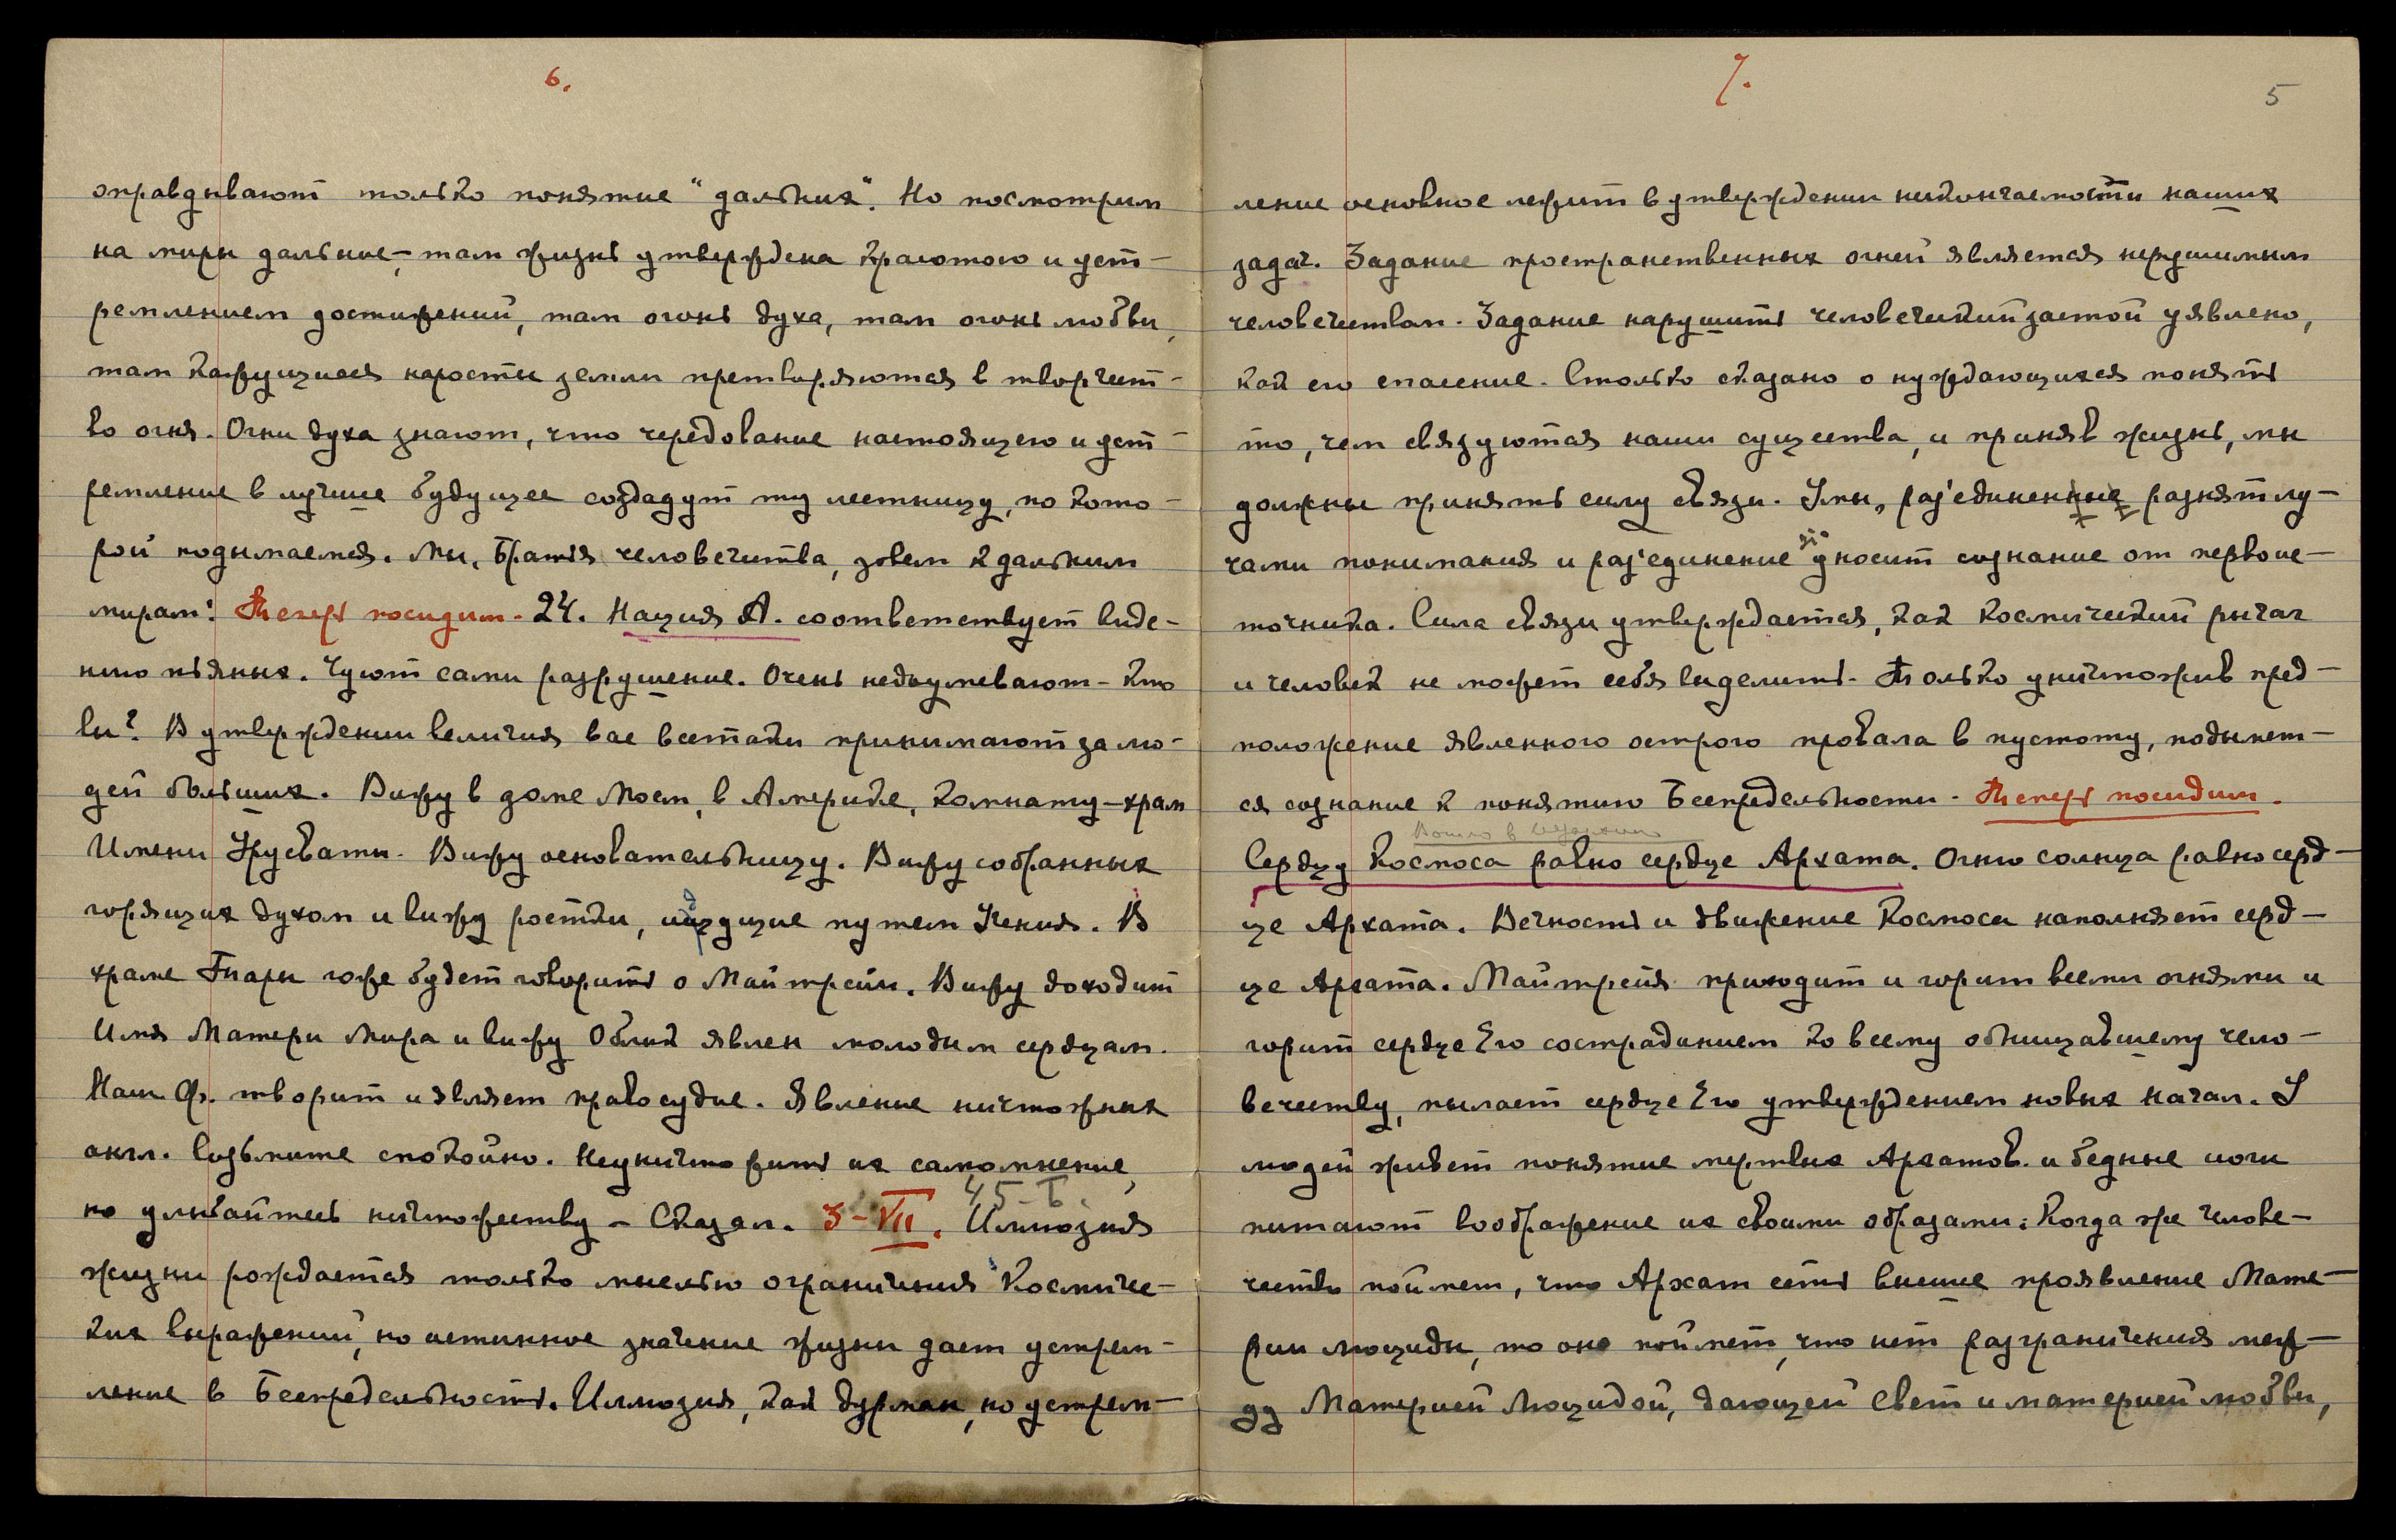 6.
оправдывают только понятие "дальних". Но посмотрим
на миры дальние, – там жизнь утверждена красотою и уст-
ремлением достижений, там огонь духа, там огонь любви,
там кажущиеся наросты земли претворяются в творчест-
во огня. Огни духа знают, что чередование настоящего и уст-
ремление в лучшее будущее создадут ту лестницу, по кото-
рой подымаемся. Мы, Братья человечества, зовем к дальним
мирам! Теперь посидим. 24. Нация А. соответствует виде-
нию пьяных. Чуют сами разрушение. Очень недоумевают – кто
вы? В утверждении величия вас всетаки принимают за лю-
дей больших. Вижу в доме Моем, в Америке, комнату – храм
Имени Урусвати. Вижу основательницу. Вижу собранных
горящих духом и вижу ростки, идущие путем Учения. В
храме Тиары тоже будет говорить о Майтрейи. Вижу доходит
Имя Матери Мира и вижу Облик явлен молодым сердцам.
Наш Ф. творит и являет правосудие. Явление ничтожных
англ. возьмите спокойно. Неуничтожить их самомнение,
но улыбайтесь ничтожеству – Сказал. 3-VII. 45-Б. Иллюзия
жизни рождается только мыслью ограничения Космиче-
ких выражений, но истинное значение жизни дает устрем-
ление в Беспредельность. Иллюзия, как дурман, но устрем-
7.
5
ление основное лежит в утверждении нескончаемости наших
задач. Задание пространственных огней является нерушимым
человечеством. Задание нарушить человеческий застой уявлено,
как его спасение. Столько сказано о нуждающихся понять
то, чем связуются наши существа, и приняв жизнь, мы
должны принять силу связи. Умы, раз'единенные разнят лу-
чами понимания и раз'единение уносит сознание от первоис-
точника. Сила связи утверждается, как космический рычаг
и человек не может себя выделить. Только уничтожив пред-
положение явленного острого провала в пустоту, подымет-
ся сознание к понятию Беспредельности. Теперь посидим.
Вошло в
Сердцу Космоса равно сердце Архата. Огню солнца равно серд-
це Архата. Вечность и движение Космоса наполняет серд-
це Архата. Майтрейя приходит и горит всеми огнями и
горит сердце Его состраданием ко всему обнищавшему чело-
вечеству, пылает сердце Его утверждением новых начал. У
людей живет понятие мертвых Архатов. и бедные йоги
питают воображение их своими образами; Когда же Челове-
чество поймет, что Архат есть высшее проявление Мате-
рии люциды, то оно поймет, что нет разграничения меж-
ду Материей Люцидой, дающей Свет и материей любви,